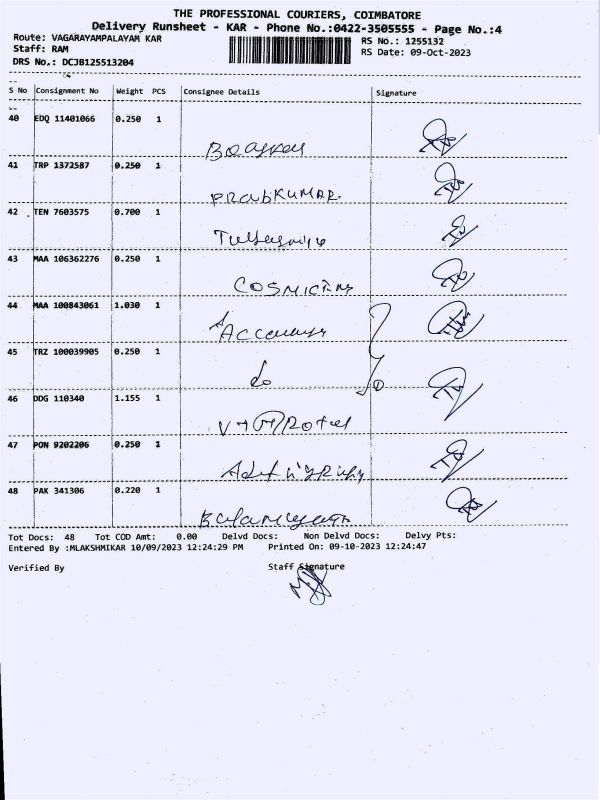 THE PROFESSIONAL COURIERS, COIMBATORE
Delivery Runsheet - KAR - Phone No.:0422-3505555 - Page No.:4
Route: VAGARAYAMPALAYAM KAR RS No.: 1255132
Staff: RAM RS Date: 09-Oct-2023
DRS No.: DCJB125513204
S No Consignment No Weight PCS Consignee Details Signature
40 EDQ 11401066 0.250 1
41 TRP 1372587 0.250 1
PRabKUMAR.
42 TEN 7603575 0.700 1
43 MAA 106362276 0.250 1
44 MAA 100843061 1.030 1
45 TRZ 100039905 0.250 1
do
46 DDG 110340 1.155 1
47 PON 9202206 0.250 1
48 PAK 341306 0.220 1
Tot Docs: 48 Tot COD Amt: 0.00 Delvd Docs: Non Delvd Docs: Delvy Pts:
Entered By :MLAKSHMIKAR 10/09/2023 12:24:29 PM Printed On: 09-10-2023 12:24:47
Verified By Staff Signature